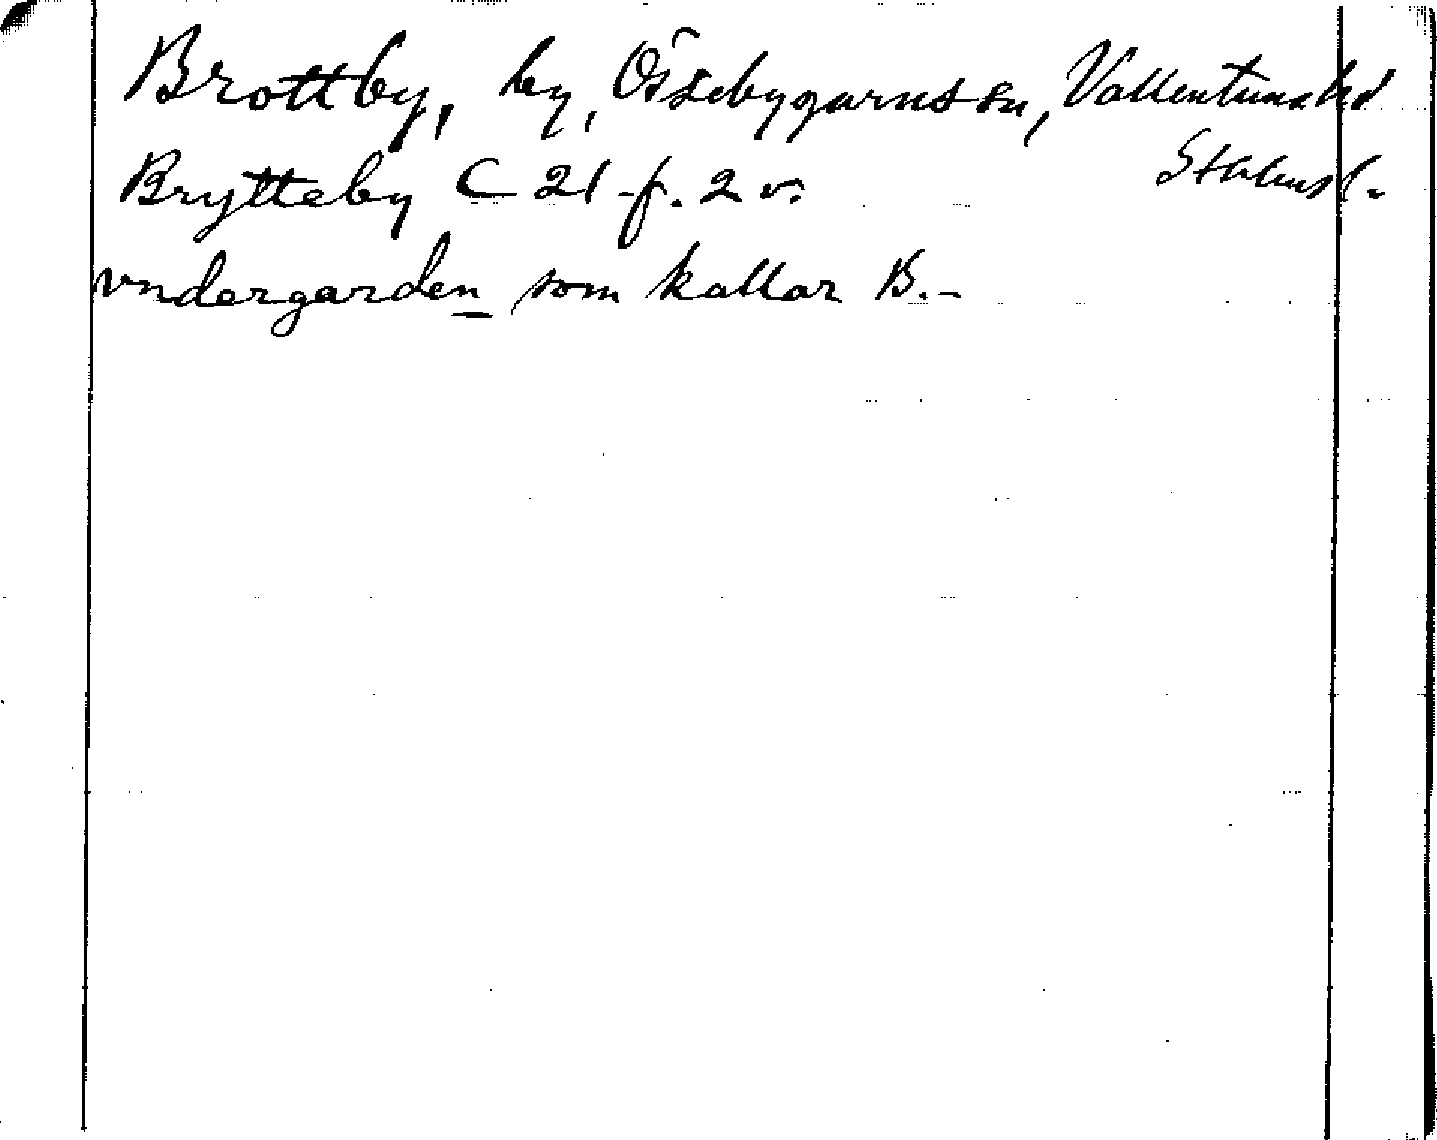 Brottby, by, Össebygarns sn, Vallentuna hd
Sthlms l.
Brytteby C 21 f. 2 v.
vndergarden som kallar B.-